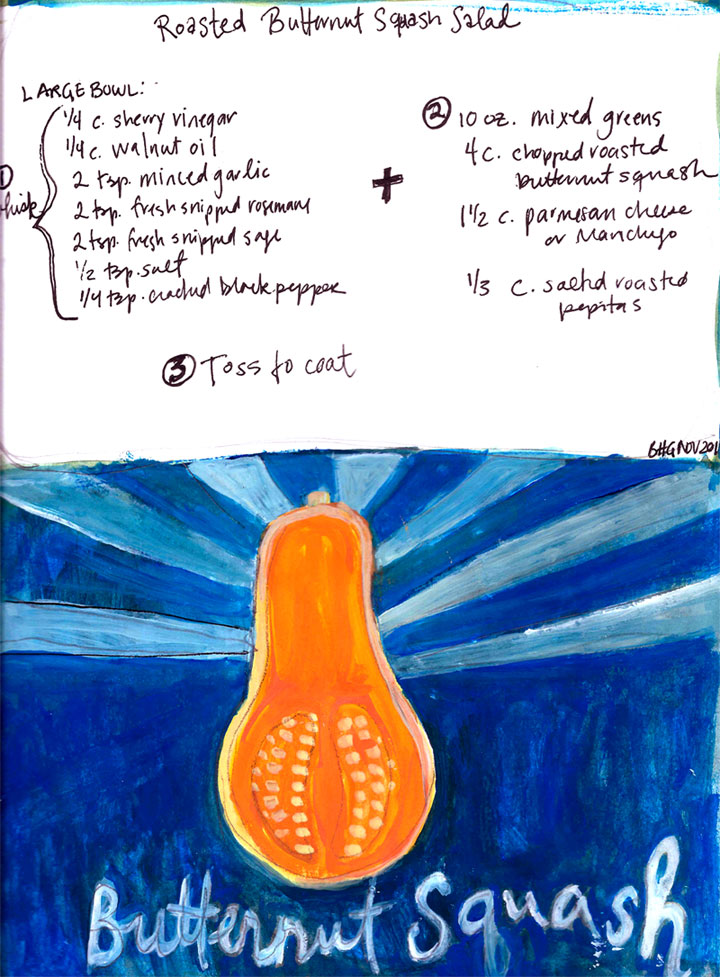 Roasted Butternut Squash Salad
LARGE BOWL:
①
whisk
1/4 c. sherry vinegar
1/4 c. walnut oil
2 tsp. minced garlic
2 tsp. fresh snipped rosemary
2 tsp. fresh snipped sage
1/2 tsp. salt
1/4 tsp. cracked black pepper
+
② 10 oz. mixed greens
4 c. chopped roasted
butternut squash
1 1/2 c. parmesan cheese
or Manchego
1/3 c. salted roasted
pepitas
③ Toss to coat
BHG NOV 201
Butternut Squash